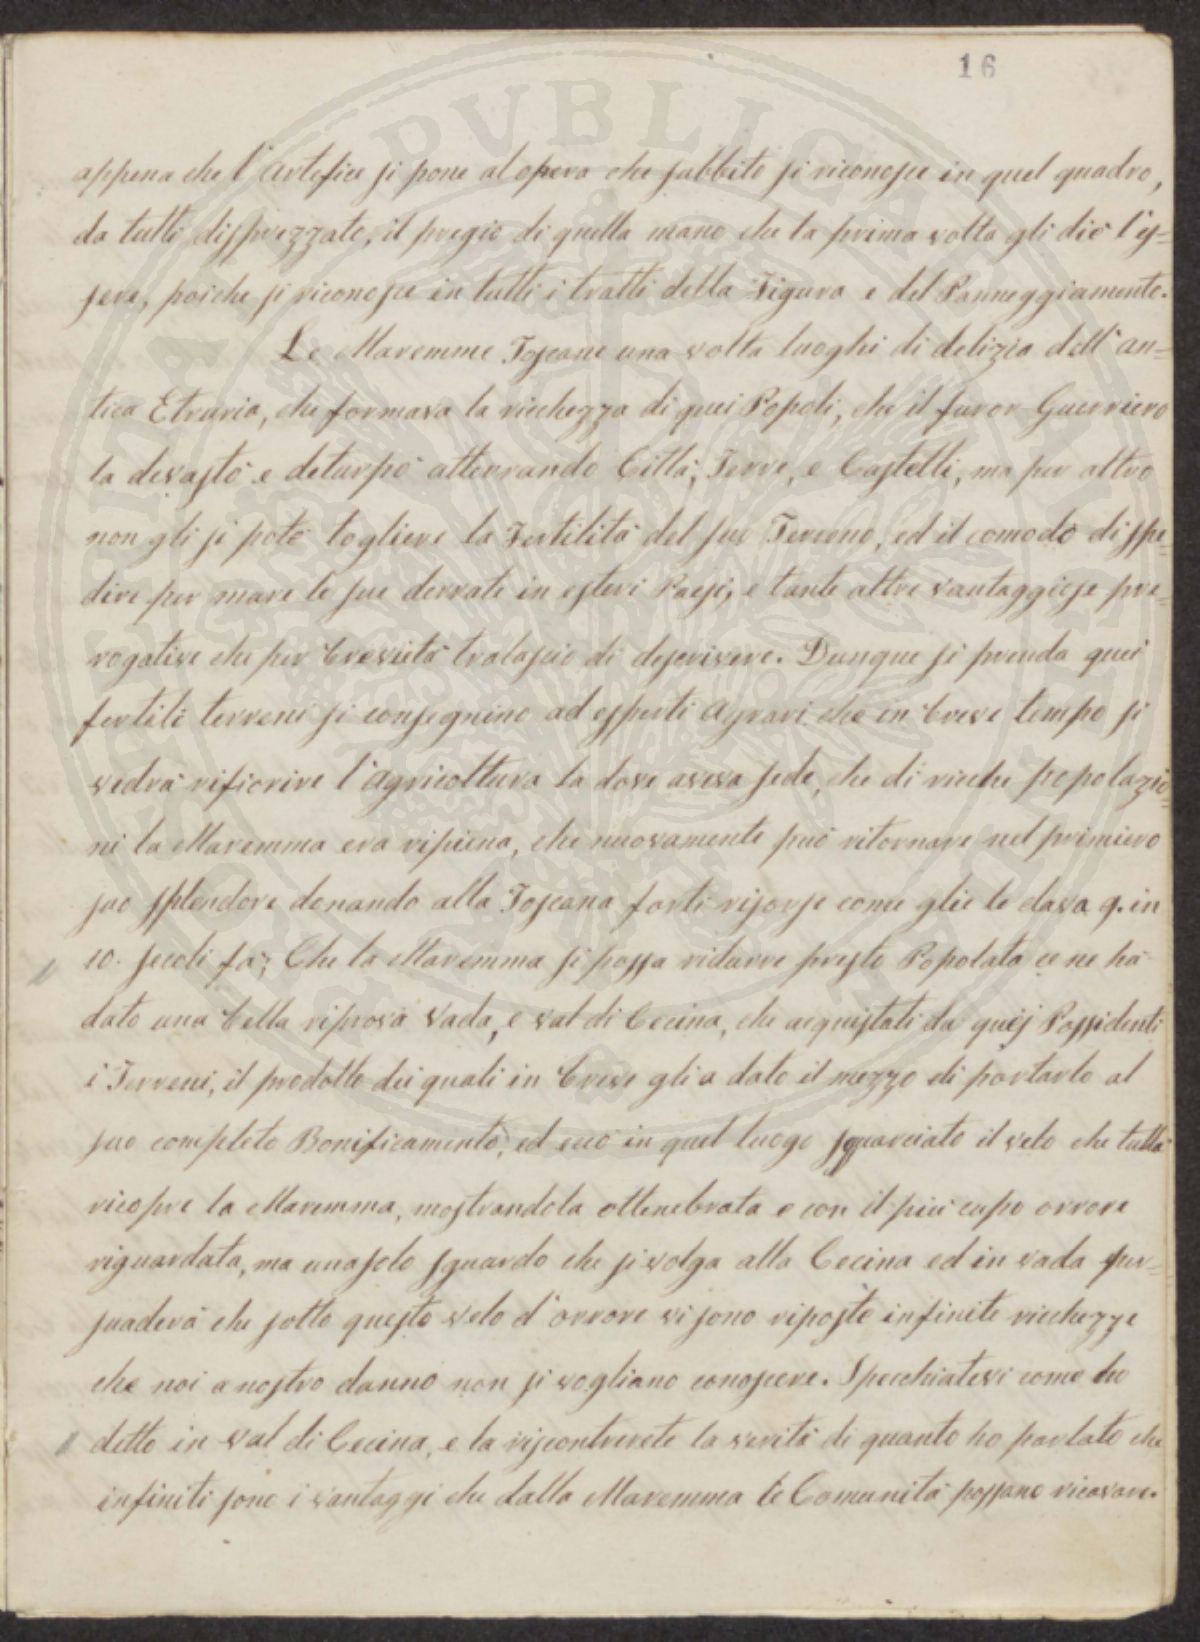 16
appena che l'Artefice si pone al opera che subbito si riconosce in quel quadro,
da tutti disprezzato, il pregio di quella mano che la prima volta gli diè l'es=
sere, poiche si riconosce in tutti i tratti della Figura e del Panneggiamento.
Le Maremme Toscane una volta luoghi di delizia dell'an=
tica Etruria, che formava la ricchezza di quei Popoli, che il furor Guerriero
la devastò e deturpò atterrando Città, Terre, e Castelli, ma per altro
non gli si potè togliere la Fertilità del suo Terreno, ed il comodo di spe=
dire per mare le sue derrate in esteri Paesi, e tante altre vantaggiose pre=
rogative che per brevietà tralascio di descrivere. Dunque si prenda quei
fertili terreni si consegnino ad esperti Agrari che in breve tempo si
vedrà rifiorire l'Agricoltura la dove aveva sede, che di ricche popolazio=
ni la Maremma era ripiena, che nuovamente può ritornare nel primiero
suo splendore donando alla Toscana forti risorse come glie le dava 9. in
10. secoli fà; Che la Maremma si possa ridurre presto Popolata ce ne hà
dato una bella riprova Vada, e Val di Cecina, che acquistati da quej Possidenti
i Terreni, il prodotto dei quali in breve gli a dato il mezzo di portarlo al
suo completo Bonificamento, ed ecco in quel luogo squarciato il velo che tutta
ricopre la Maremma, mostrandola ottenebrata e con il più cupo orrore
riguardata, ma una solo sguardo che si volga alla Cecina ed in Vada per=
suaderà che sotto questo velo d'orrore vi sono riposte infinite ricchezze
che noi a nostro danno non si vogliano conoscere. Specchiatevi come ho
detto in Val di Cecina, e la riscontrerete la verità di quanto ho parlato che
infiniti sono i vantaggi che dalla Maremma le Comunità possano ricavare.